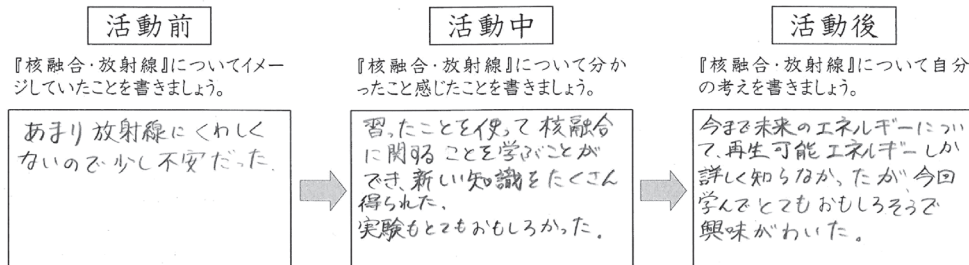 活動前
『核融合・放射線』についてイメー
ジしていたことを書きましょう。
あまり放射線にくわしく
ないので少し不安だった.
活動中
『核融合・放射線』について分か
ったこと感じたことを書きましょう。
習ったことを使って核融合
に関することを学ぶことが
でき、新しい知識をたくさん
得られた、
実験もとてもおもしろかった。
活動後
『核融合・放射線』について自分
の考えを書きましょう。
今まで未来のエネルギーについ
て、再生可能エネルギーしか
詳しく知らなかったが、今回
学んでとてもおもしろそうで
興味がわいた。